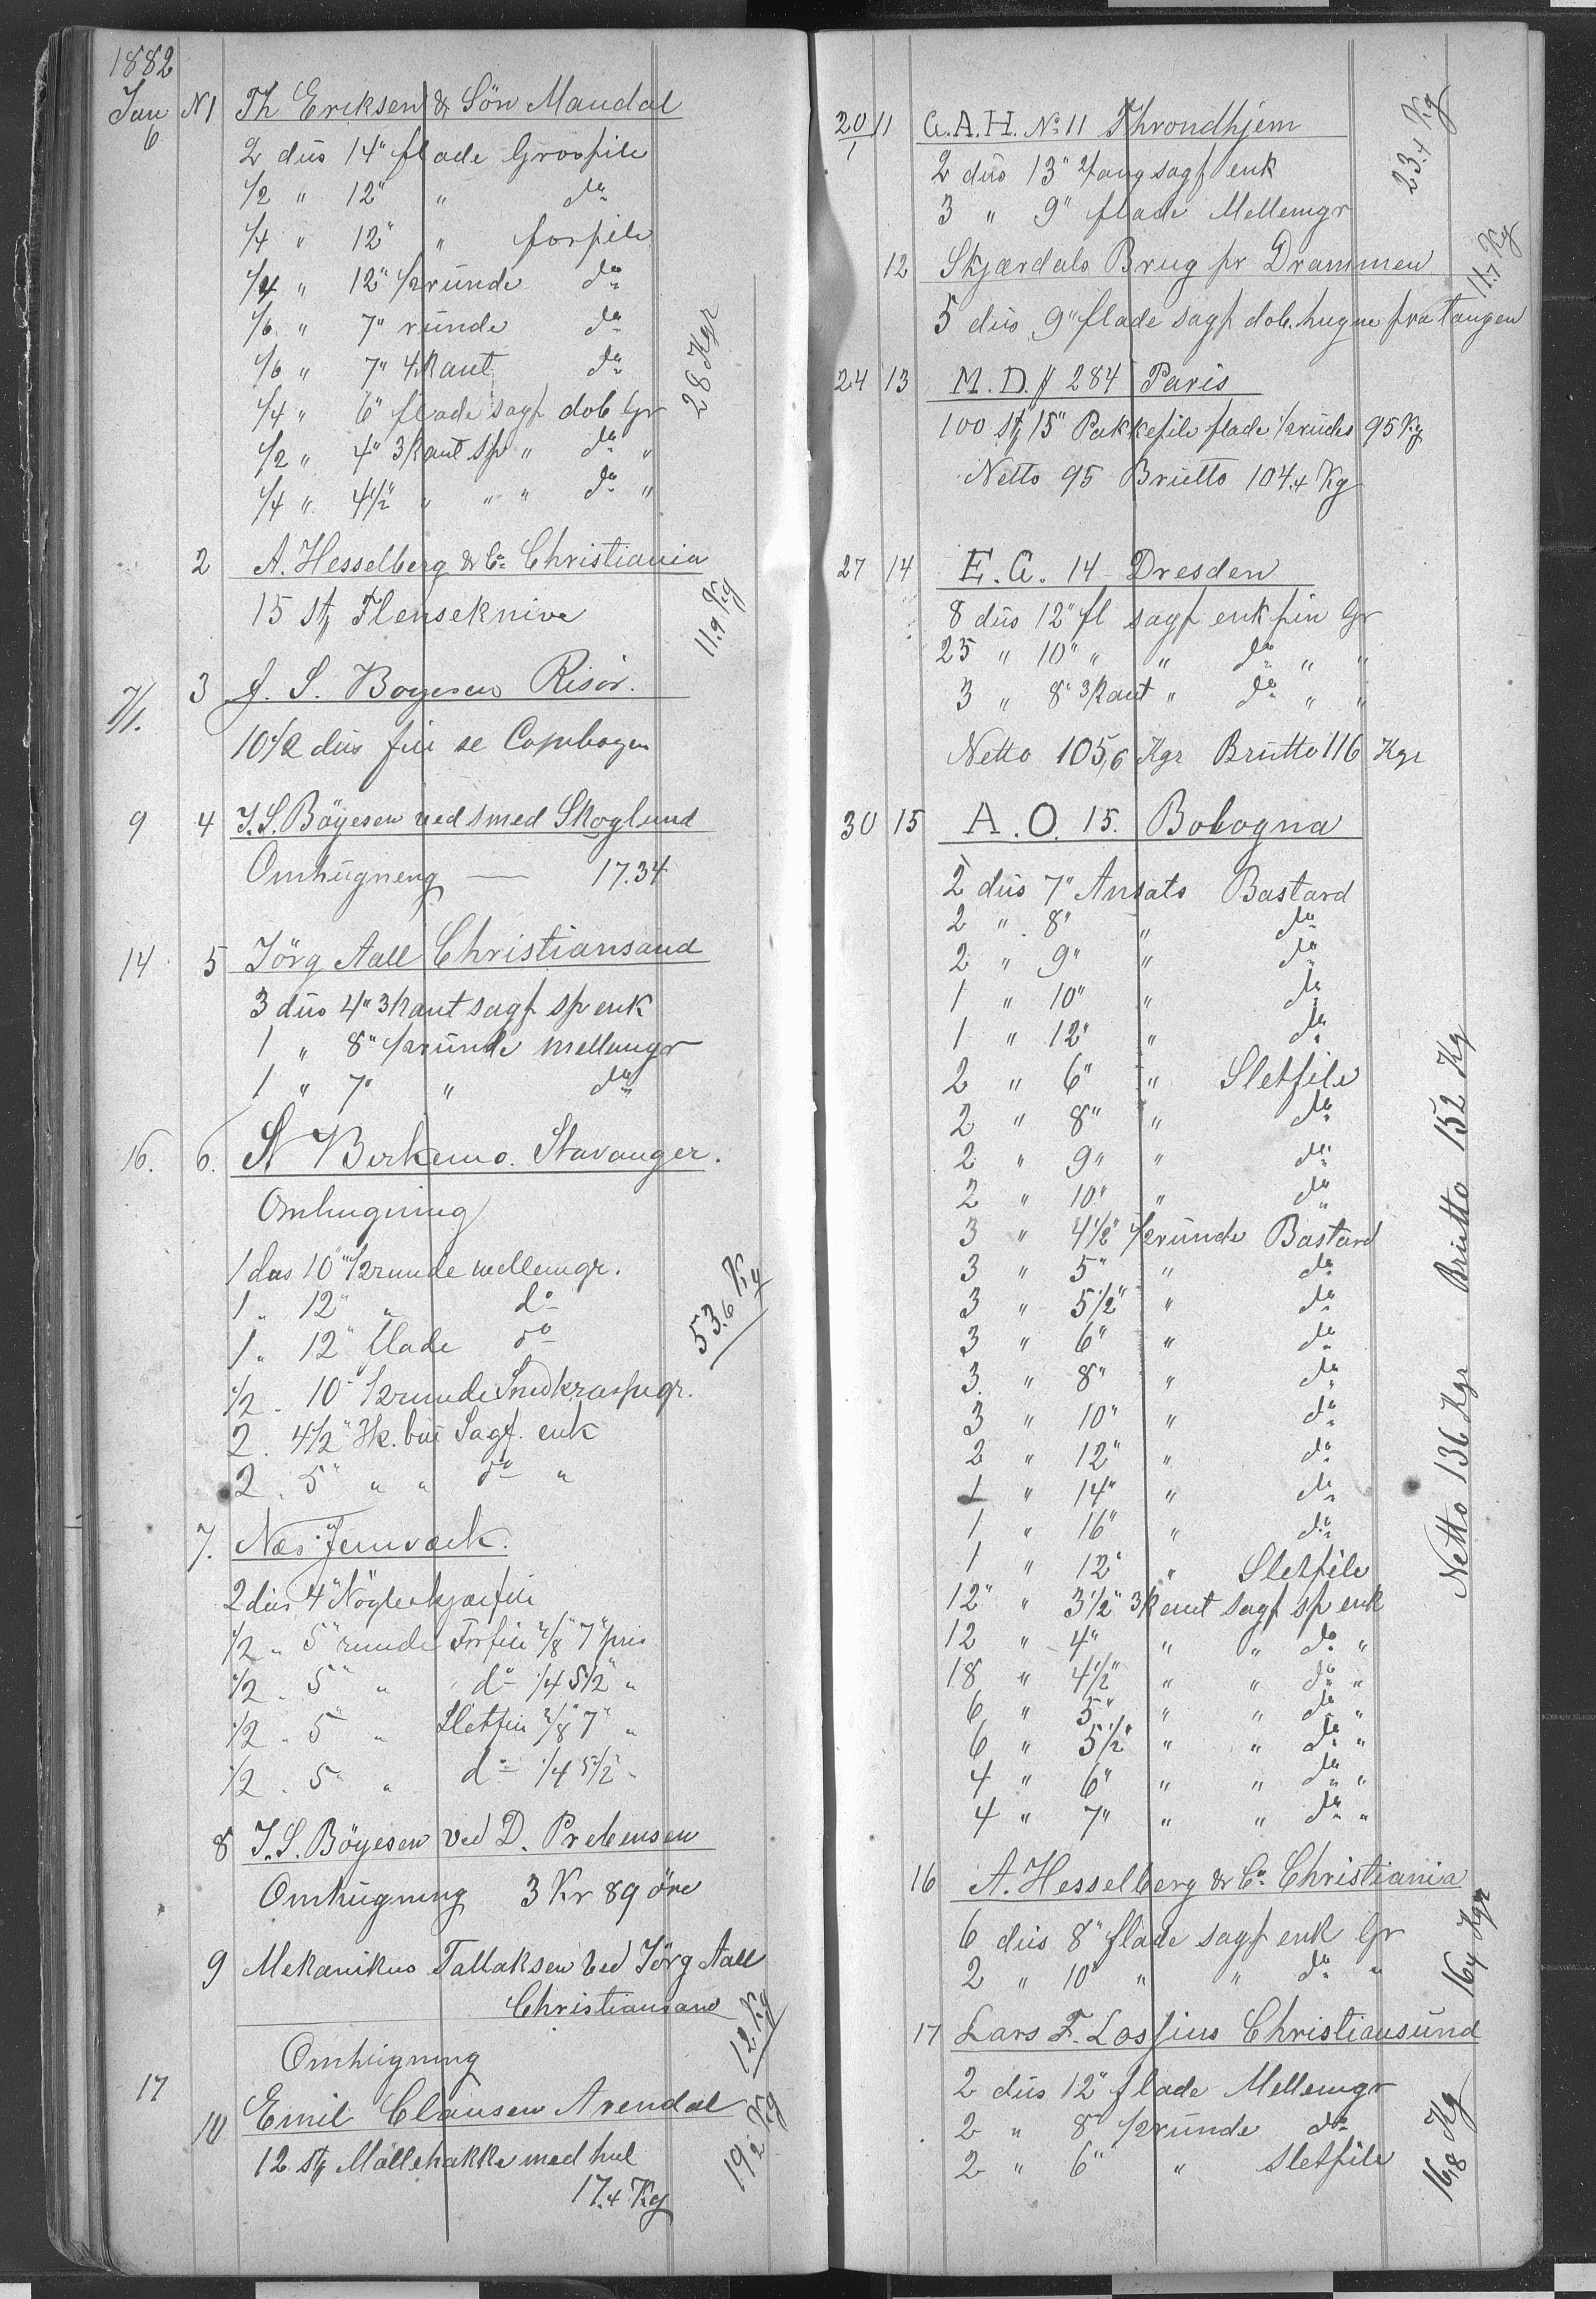 1882
Jan 6 N1 Th Eriksen & Sön Mandal
2 düs 14" flade Grovfile
1/2 " 12" " do
1/4 " 12" " forfile
1/4 " 12" 1/2ründe do
1/6 " 7" ründe do
1/6 " 7" 4kant do
1/4 " 6" flade sagf dob Gr
1/2 " 4" 3kant sp " do "
1/4 " 4 1/2" " " " do "
28 Kgr
2 A. Hesselberg & Co Christiania
15 St Flenseknive
11.9 Kg
7/1. 3 J. S. Boyesen Risör.
10 1/2 düs file se Copibogen
9 4 J. S. Böyesen ved smed Skoglund
Omhügneng — 17.34
14 5 Jörg Aall Christiansand
3 düs 4" 3kant sagf sp enk
1 " 8" 1/2ründe mellemgr
1 " 7" " do
16. 6. N Birkemo. Stavanger.
Omhugning
1 dus 10" 1/2runde mellemgr.
1 " 12" " do
1 " 12" flade do
1/2 " 10" 1/2runde Snedkraspegr.
2 " 4 1/2" 3k. Sagf. enk
2 " 5" " " do "
53.6 Kg
7. Næs Jernværk.
2 düs 4" Nögleskjærfile
1/2 " 5" runde Forfile 2/8" 7"
1/2 " 5" " do 1/4 5 1/2" "
1/2 " 5" " Sletfile 2/8" 7" "
1/2 " 5" " do 1/4 5 1/2" "
8 J. S. Böyesen ved D. Prebensen
Omhügning 3 Kr 89 öre
9 Mekanikus Tallaksen ved Jörg Aall
Christiansand
Omhügning
12 Kg
17 10 Emil Clausen Arendal
12 St Möllehakke med hul
17.4 Kg
19.2 Kg
20/1 11 G.A.H. No 11 Throndhjem
2 düs 13" Tang sagf enk
3 " 9" flade Mellemgr
23.4 Kg
12 Skjærdals Brug pr Drammen
5 düs 9" flade sagf dob. hugne fra tangen
11.7 Kg
24 13 M. D. # 284 Paris
100 St 15" Pakkefile flade 1/2rüdes 95 Kg
Netto 95 Brütto 104.4 Kg
27 14 E. G. 14 Dresden
8 düs 12" fl sagf enk fin Gr
25 " 10" " " do " "
3 " 8" 3kant " do " "
Netto 105,6 Kgr Brütto 116 Kgr
30 15 A. O. 15. Bologna
2 düs 7" Ansats Bastard
2 " 8" " do
2 " 9" " do
1 " 10" " do
1 " 12" " do
2 " 6" " Sletfile
2 " 8" " do
2 " 9" " do
2 " 10" " do
3 " 4 1/2" 1/2ründe Bastard
3 " 5" " do
3 " 5 1/2" " do
3 " 6" " do
3 " 8" " do
3 " 10" " do
2 " 12" " do
1 " 14" " do
1 " 16" " do
1 " 12" " Sletfile
12 " 3 1/2" 3kant sagf sp enk
12 " 4" " " do "
18 " 4 1/2" " " do "
6 " 5" " " do "
6 " 5 1/2" " " do "
4 " 6" " " do "
4 " 7" " " do "
Netto 136 Kgr Brütto 152 Kg
16 A. Hesselberg & Co Christiania
6 düs 8" flade sagf enk Gr
2 " 10" " " do "
16,4 Kgr
17 Lars F. Lossius Christiansünd
2 düs 12" flade Mellemgr
2 " 8" 1/2ründe do
2 " 6" " Sletfile
16,8 Kg